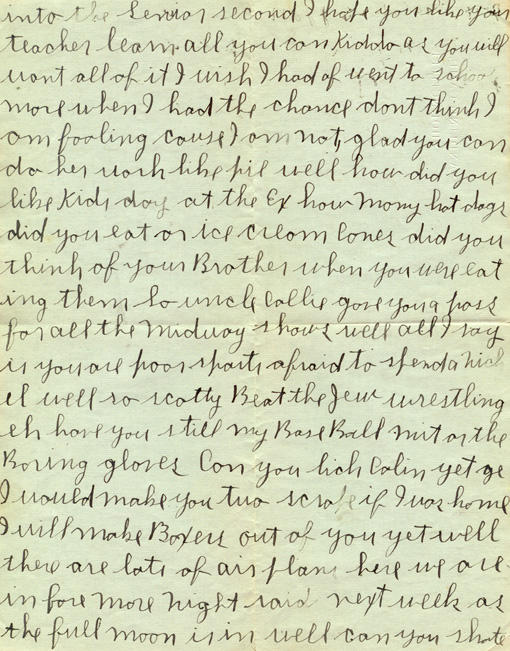 into the Senior second I hope you like your
teacher learn all you can Kiddo as you will
want all of it I wish I had of went to school
more when I had the chance dont think I
am fooling cause I am not, glad you can
do her work like pie well how did you
like Kids day at the Ex how many hot dogs
did you eat or ice cream Cones did you
think of your Brother when you were eat
ing them So uncle Collie gave you a pass
for all the Midway shows well all I say
is you are poor sports afraid to spend a nick
el well so scotty Beat the Jew wrestling
eh have you still my Base Ball mit or the
Boxing gloves Can you lick Colin yet ge
I would make you two scrap if I was home
I will make Boxers out of you yet well
there are lots of air plans here we are
in fore more night raid next week as
the full moon is in well can you skate